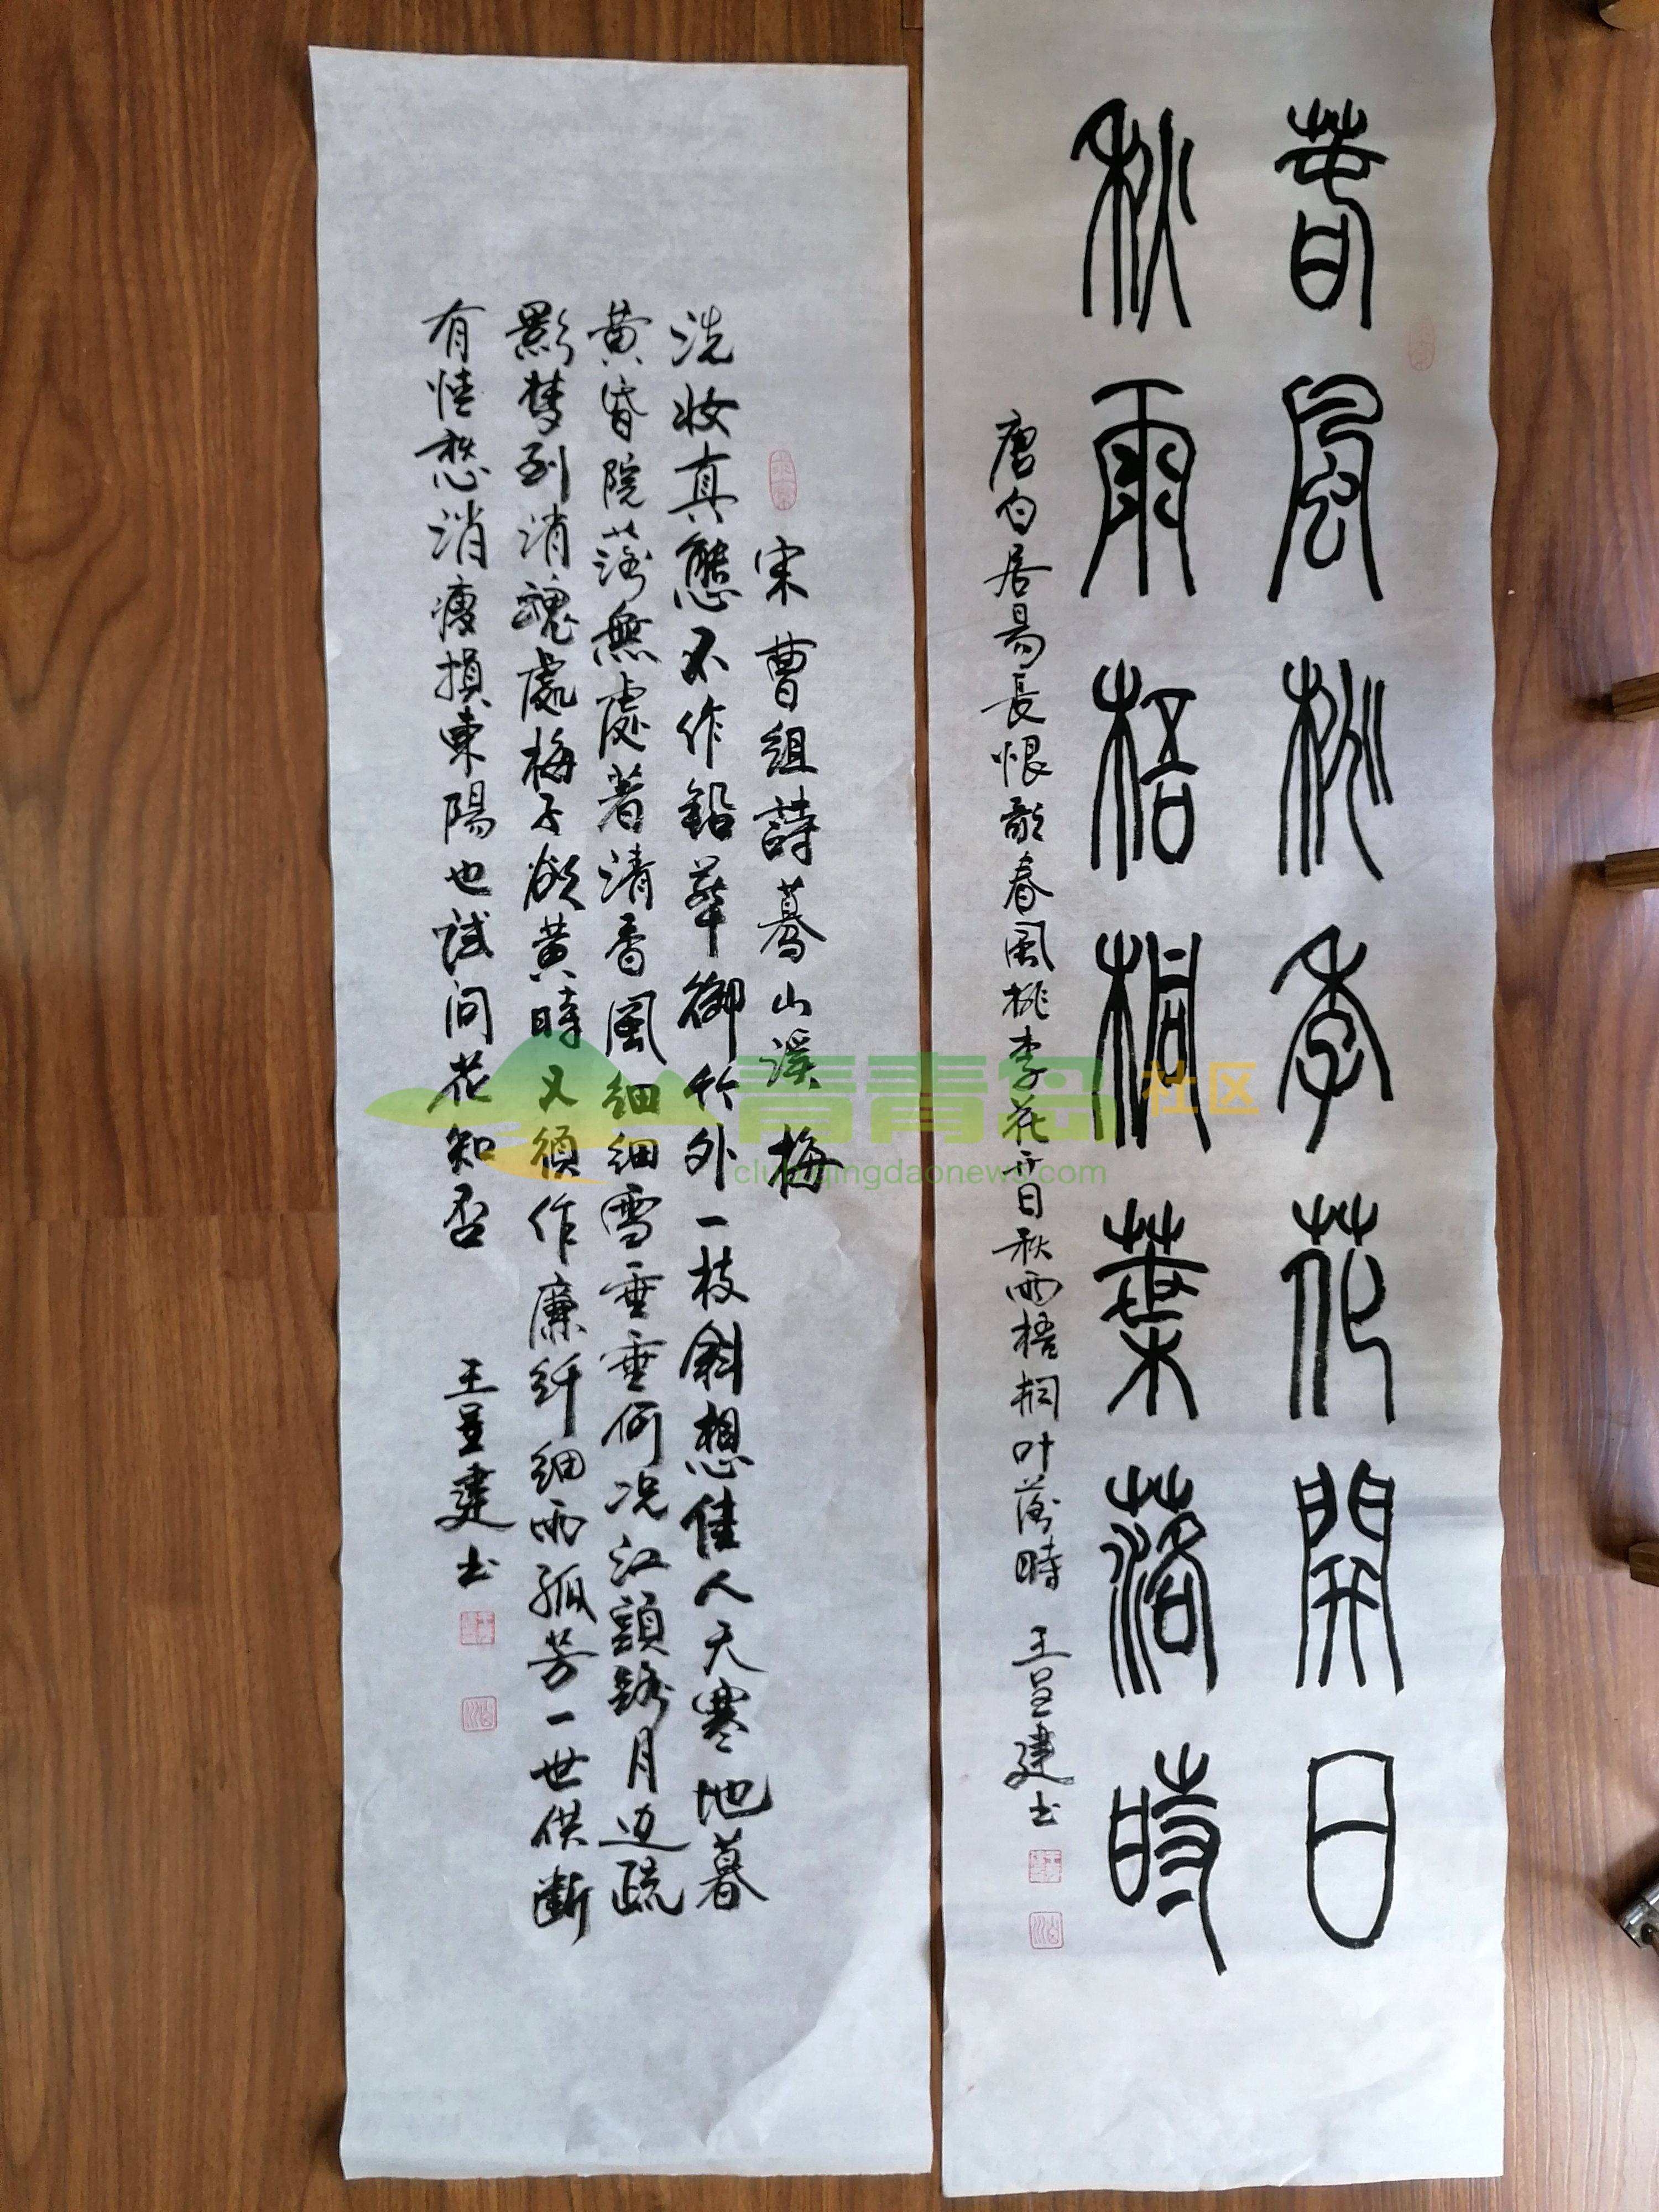 春風桃李花開日
秋雨梧桐葉落時
唐白居易長恨歌春風桃李花开日秋雨梧桐叶落時 王呈建书
宋曹組詩蓦山溪 梅
洗妆真態不作鉛華御竹外一枝斜想佳人天寒地暮
黄昏院落無處著清香風細細雪垂垂何况江頭路月边疏
影梦到消魂處梅子欲黄時又須作廉纤細雨孤芳一世供断
有情愁消瘦損東陽也试问花知否 王呈建书
青青岛社区
club.qingdaonews.com